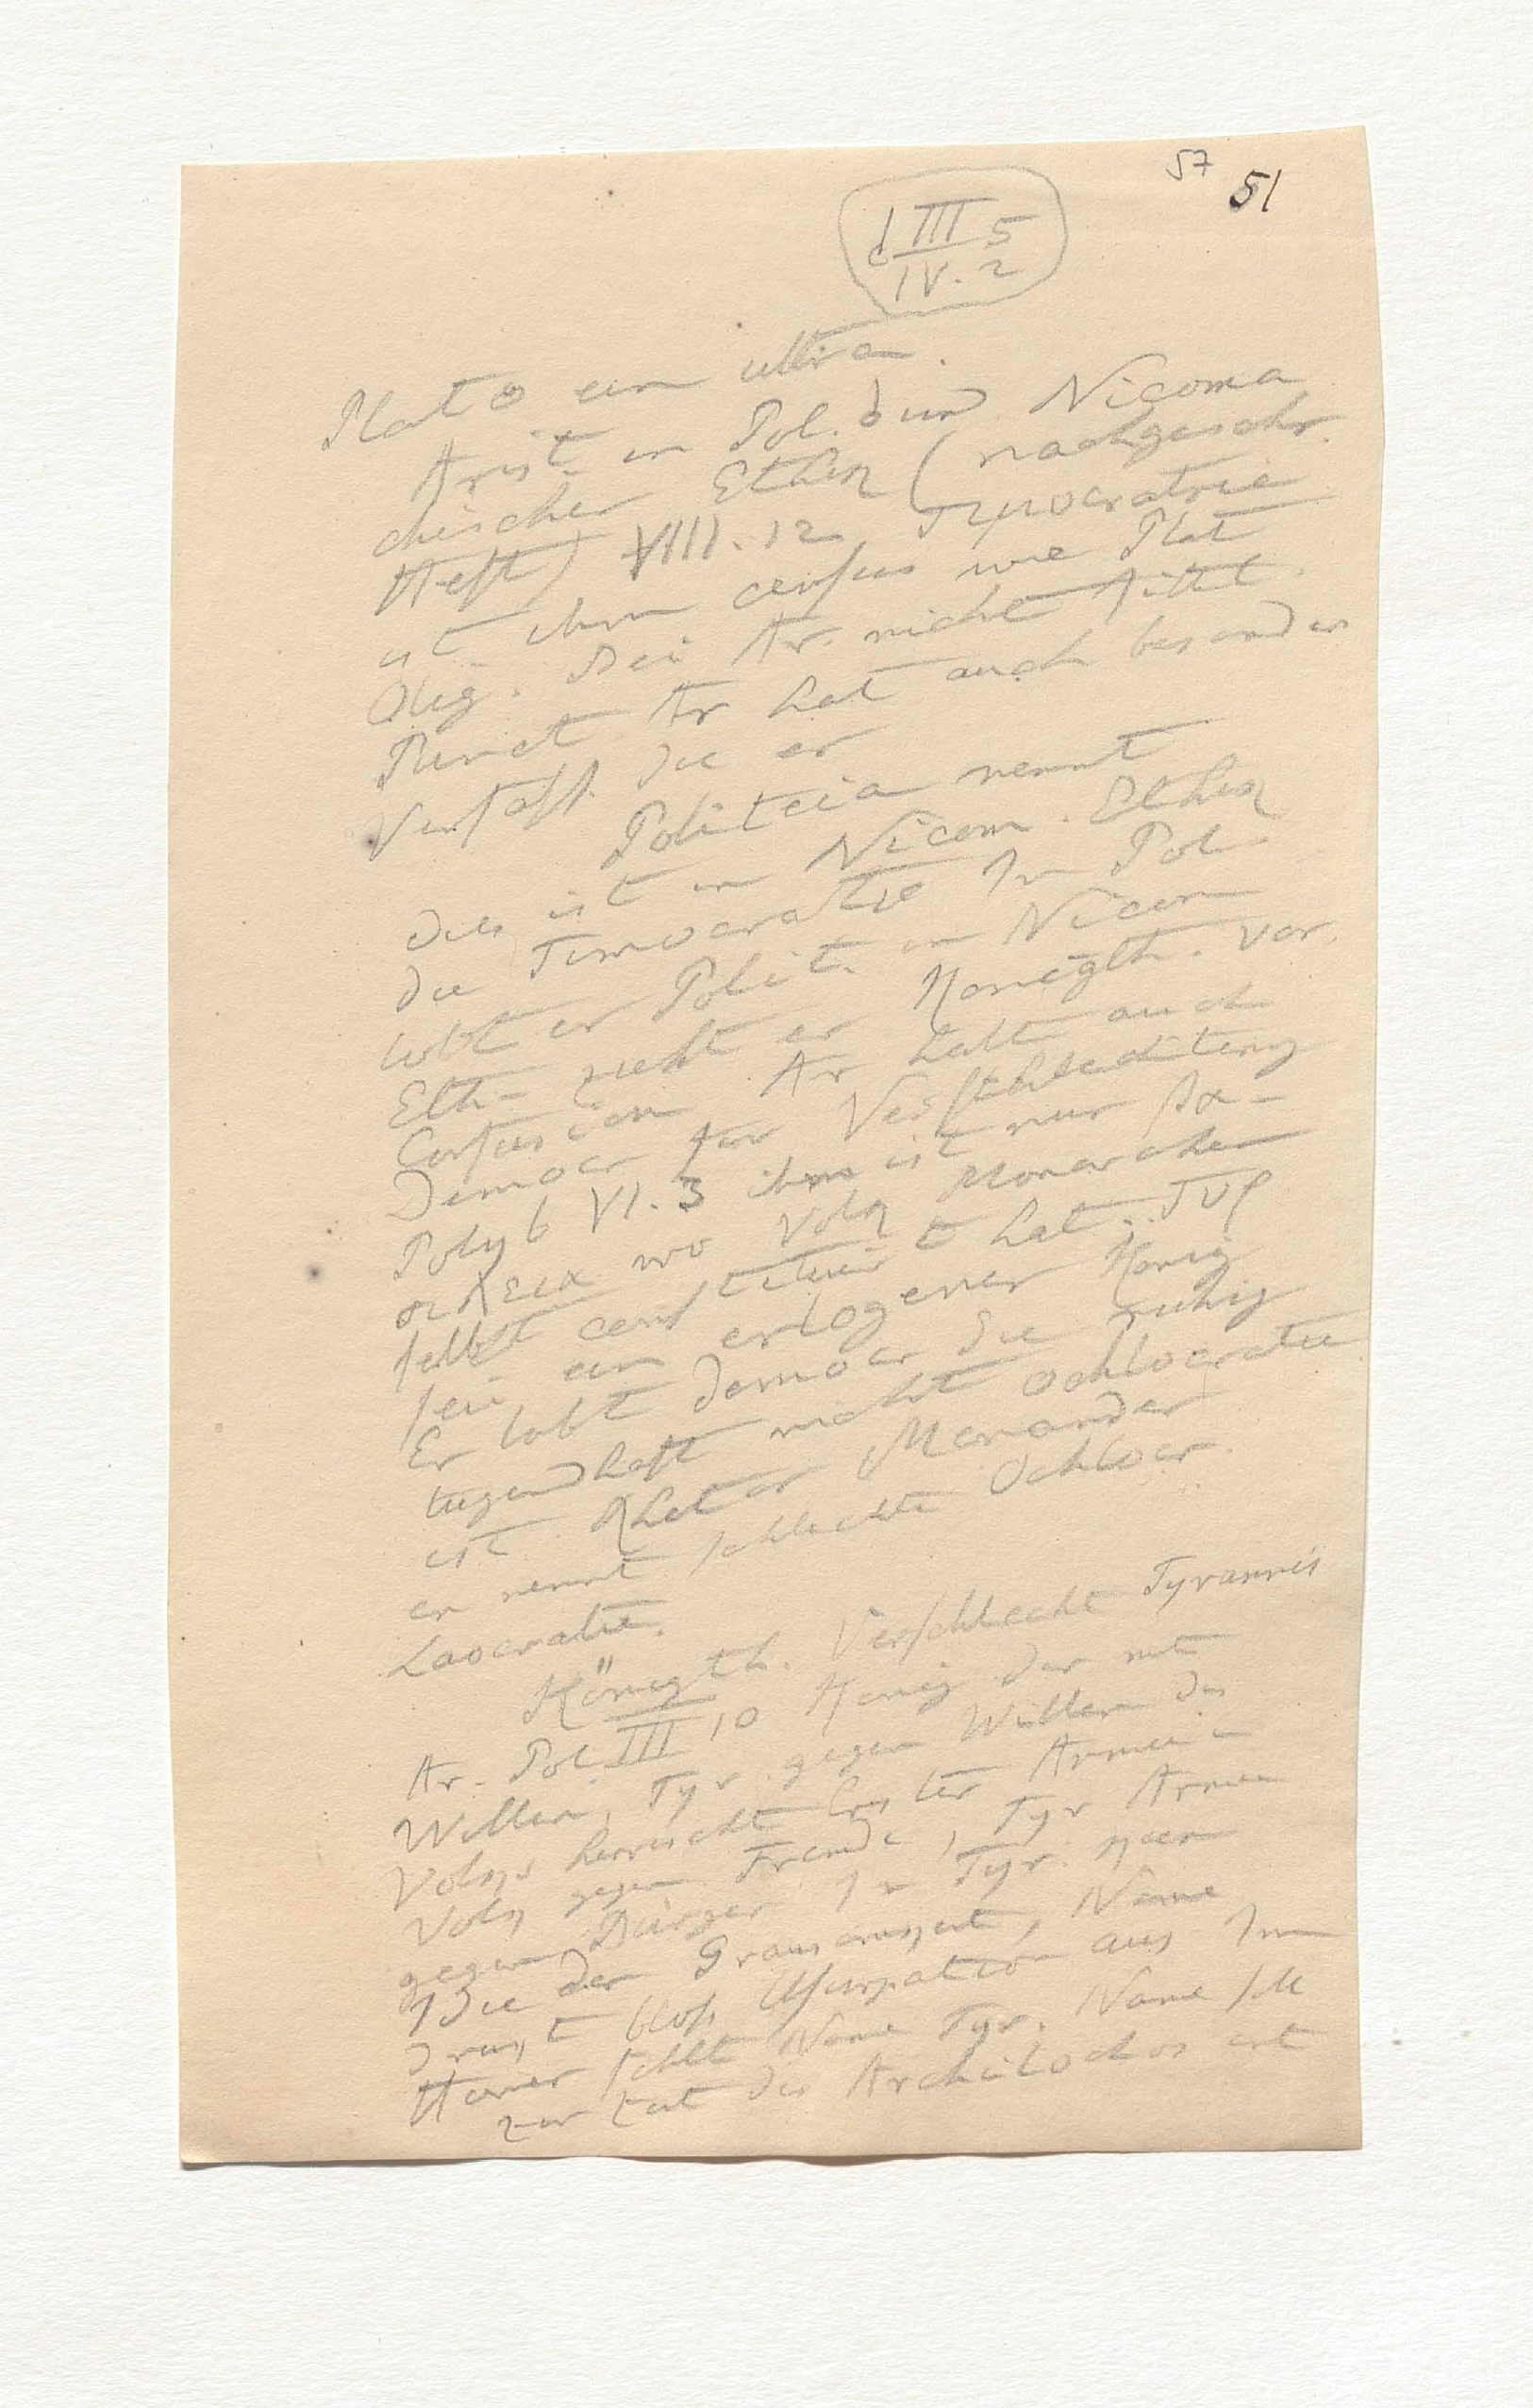 57 51
d III 5
IV. 2
Plato ein ultra.
Arist in Pol. und Nicoma
chischer Ethik (nachgeschr.
Heft) VIII. 12 Timocratrie
ist ihm census wie Plat
Olig. Bei Ar. nicht
Ar hat auch besonder
Verfass. die er
Politeia nennt
dies ist in Nicom. Ethik
die Timocratie In Pol
lobt er Polit. in Nicom
Eth- zieht er Konigth. vor.
Confusion Ar halt auch
Democr fur Verschlechterung
Polyb VI. 3 ihm ist nur βα-
σιλεια wo Volk Monarchen
selbst constituirt hat. τυρ
sei ein erlogener Konig
Er lobt Democr die ruhig
tugendhaft nicht Ochlocratie
ist Rhetor Menander
er nennt schlechte Ochlocr.
Laocratie.
Königth. Verschlecht Tyrannis
Ar. Pol. III 10 Konig der mit
Willen, Tyr. gegen Willen des
Volks herrscht Erster Armee in
Volk gegen Fremde, Tyr Armee
gegen Bürger In Tyr. kein
Idee der Grausamkeit, Name
druckt bloss Usurpation aus Im
Homer fehlt Name Tyr. Name soll
zur Zeit des Archilochos ent